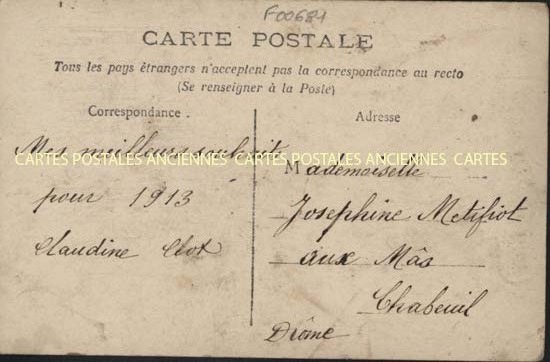 F00681
CARTE POSTALE
Tous les pays étrangers n'acceptent pas la correspondance au recto
(Se renseigner à la Poste)
Correspondance.
Mes meilleurs souhaits
pour 1913
Claudine Clot
Adresse
Mademoiselle
Josephine Metifiot
aux Mâs
Chabeuil
Drôme
CARTES POSTALES ANCIENNES CARTES POSTALES ANCIENNES CARTES